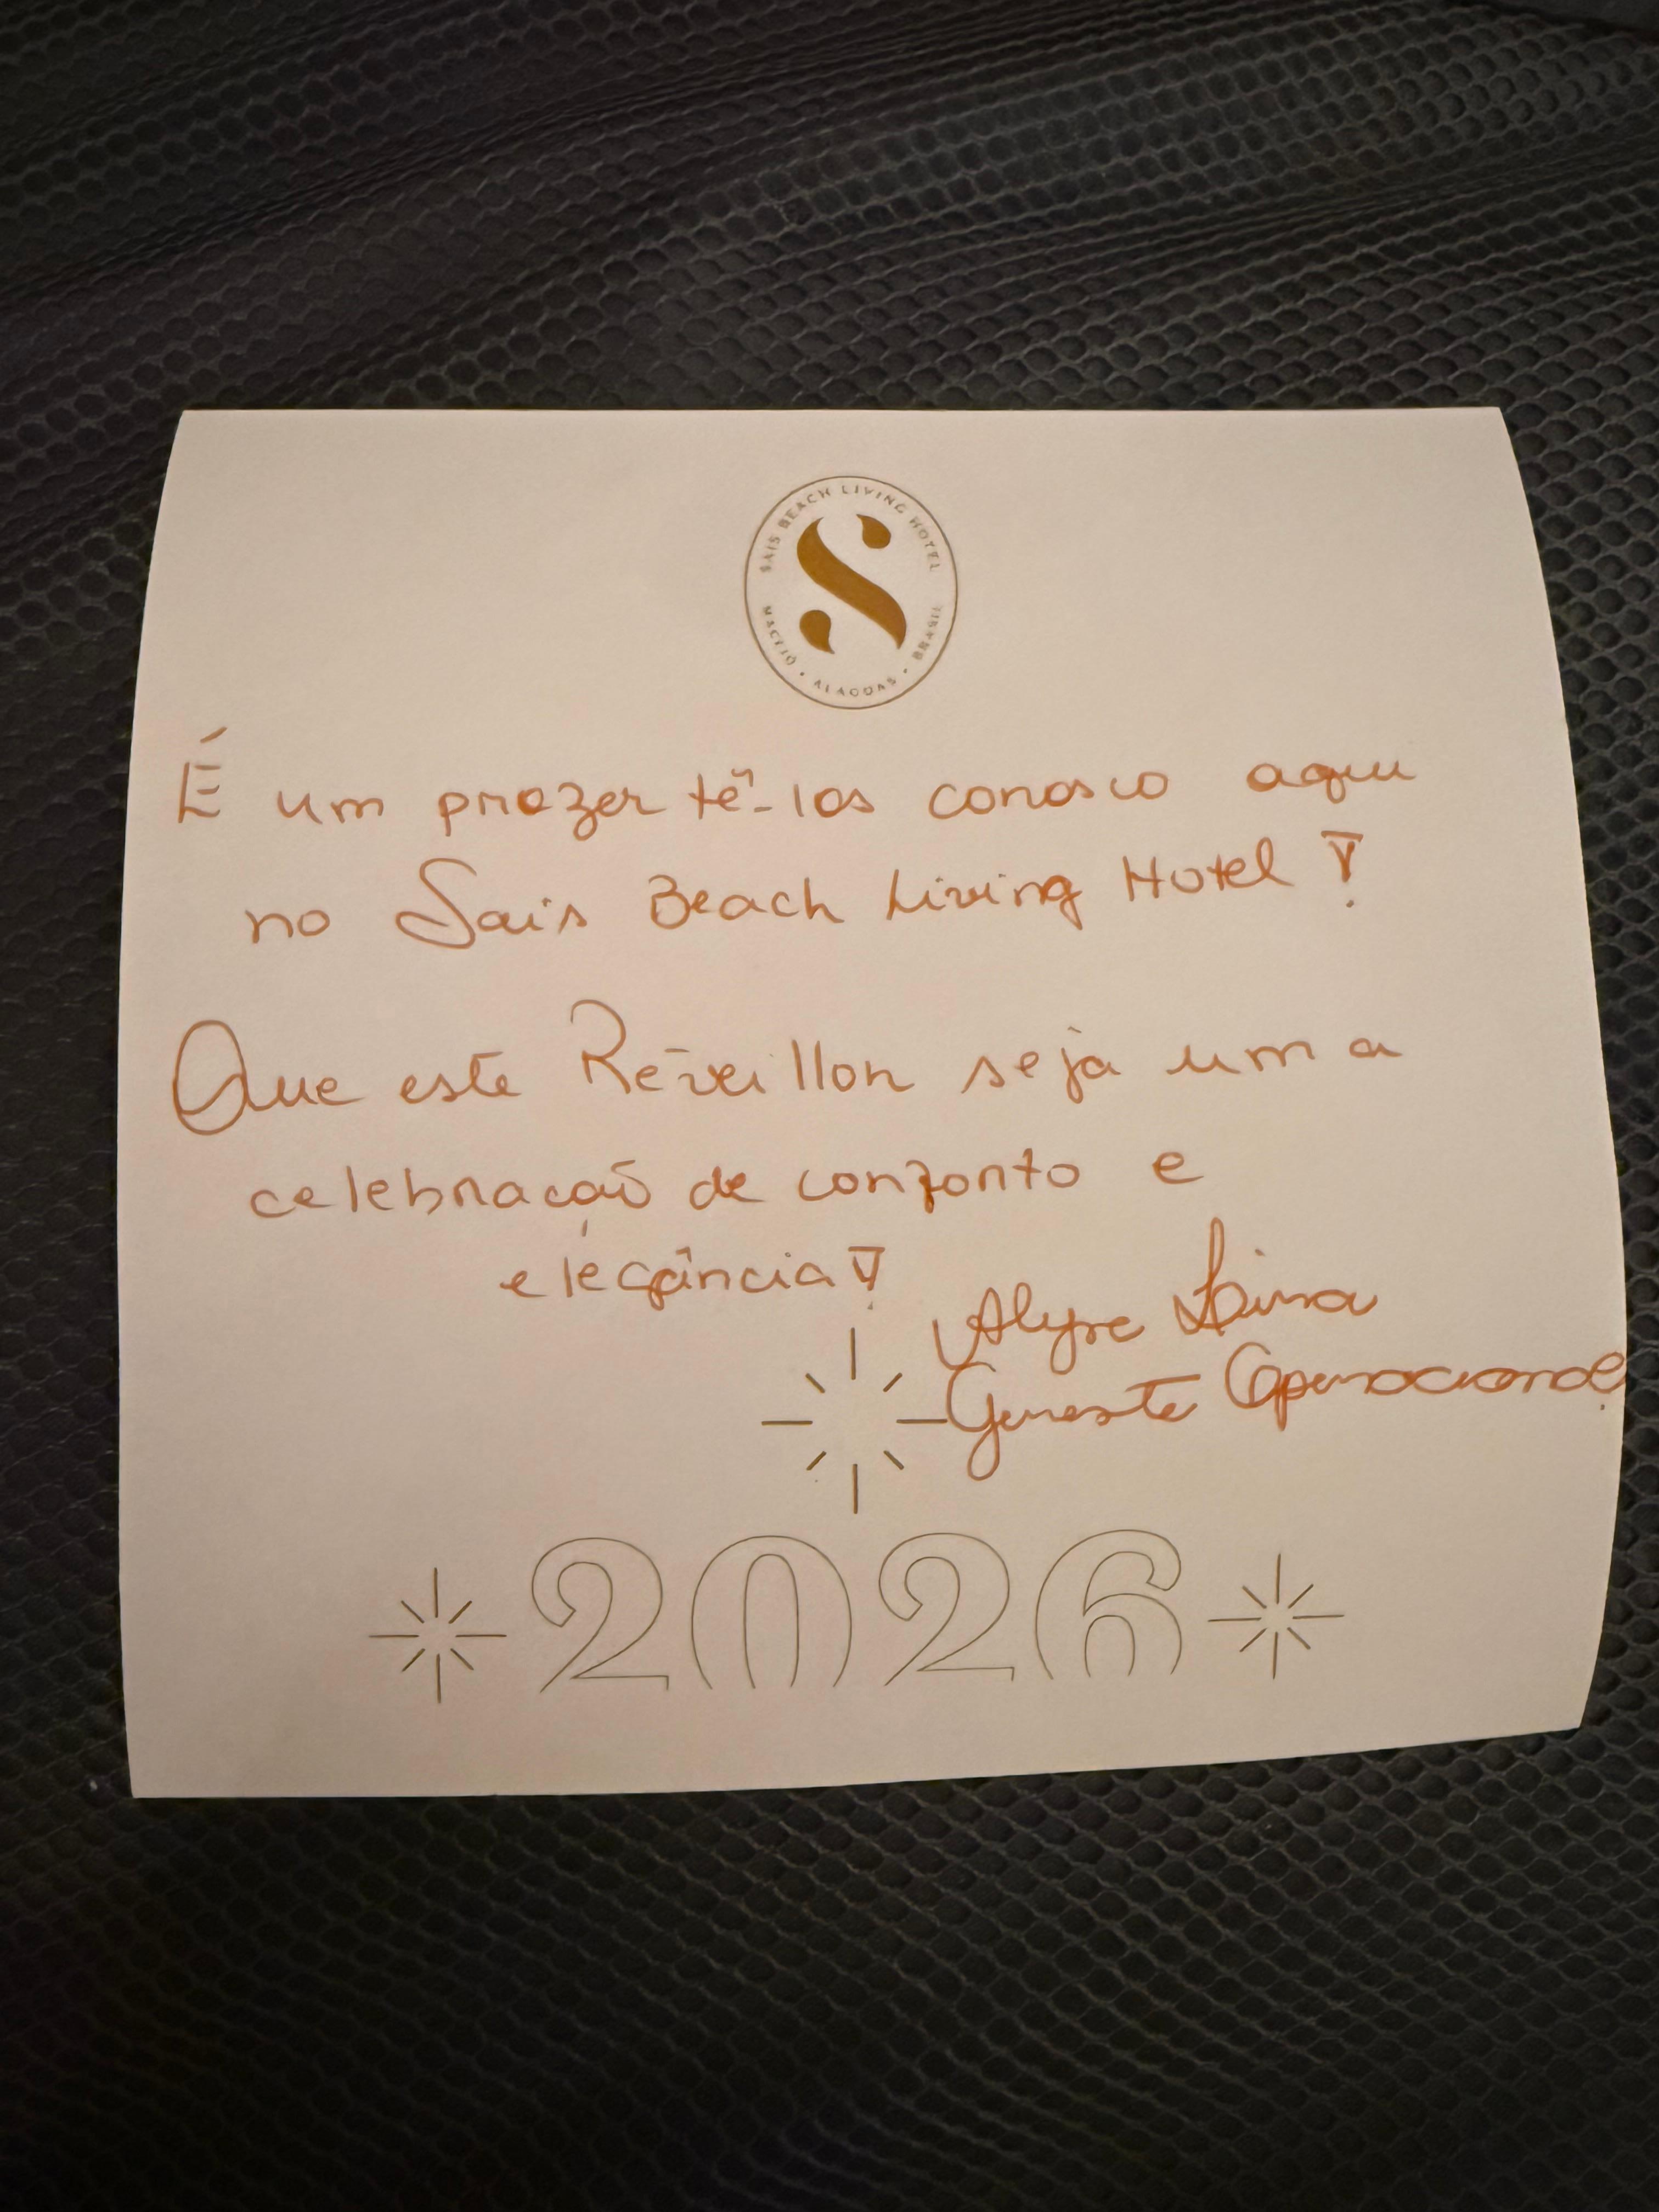 SAIS BEACH LIVING HOTEL
MACEIÓ • ALAGOAS • BRASIL
S
É um prazer tê-los conosco aqui
no Sais Beach Living Hotel!
Que este Réveillon seja uma
celebração de conforto e
elegância!
Alyse Lima
Gerente Operacional
2026